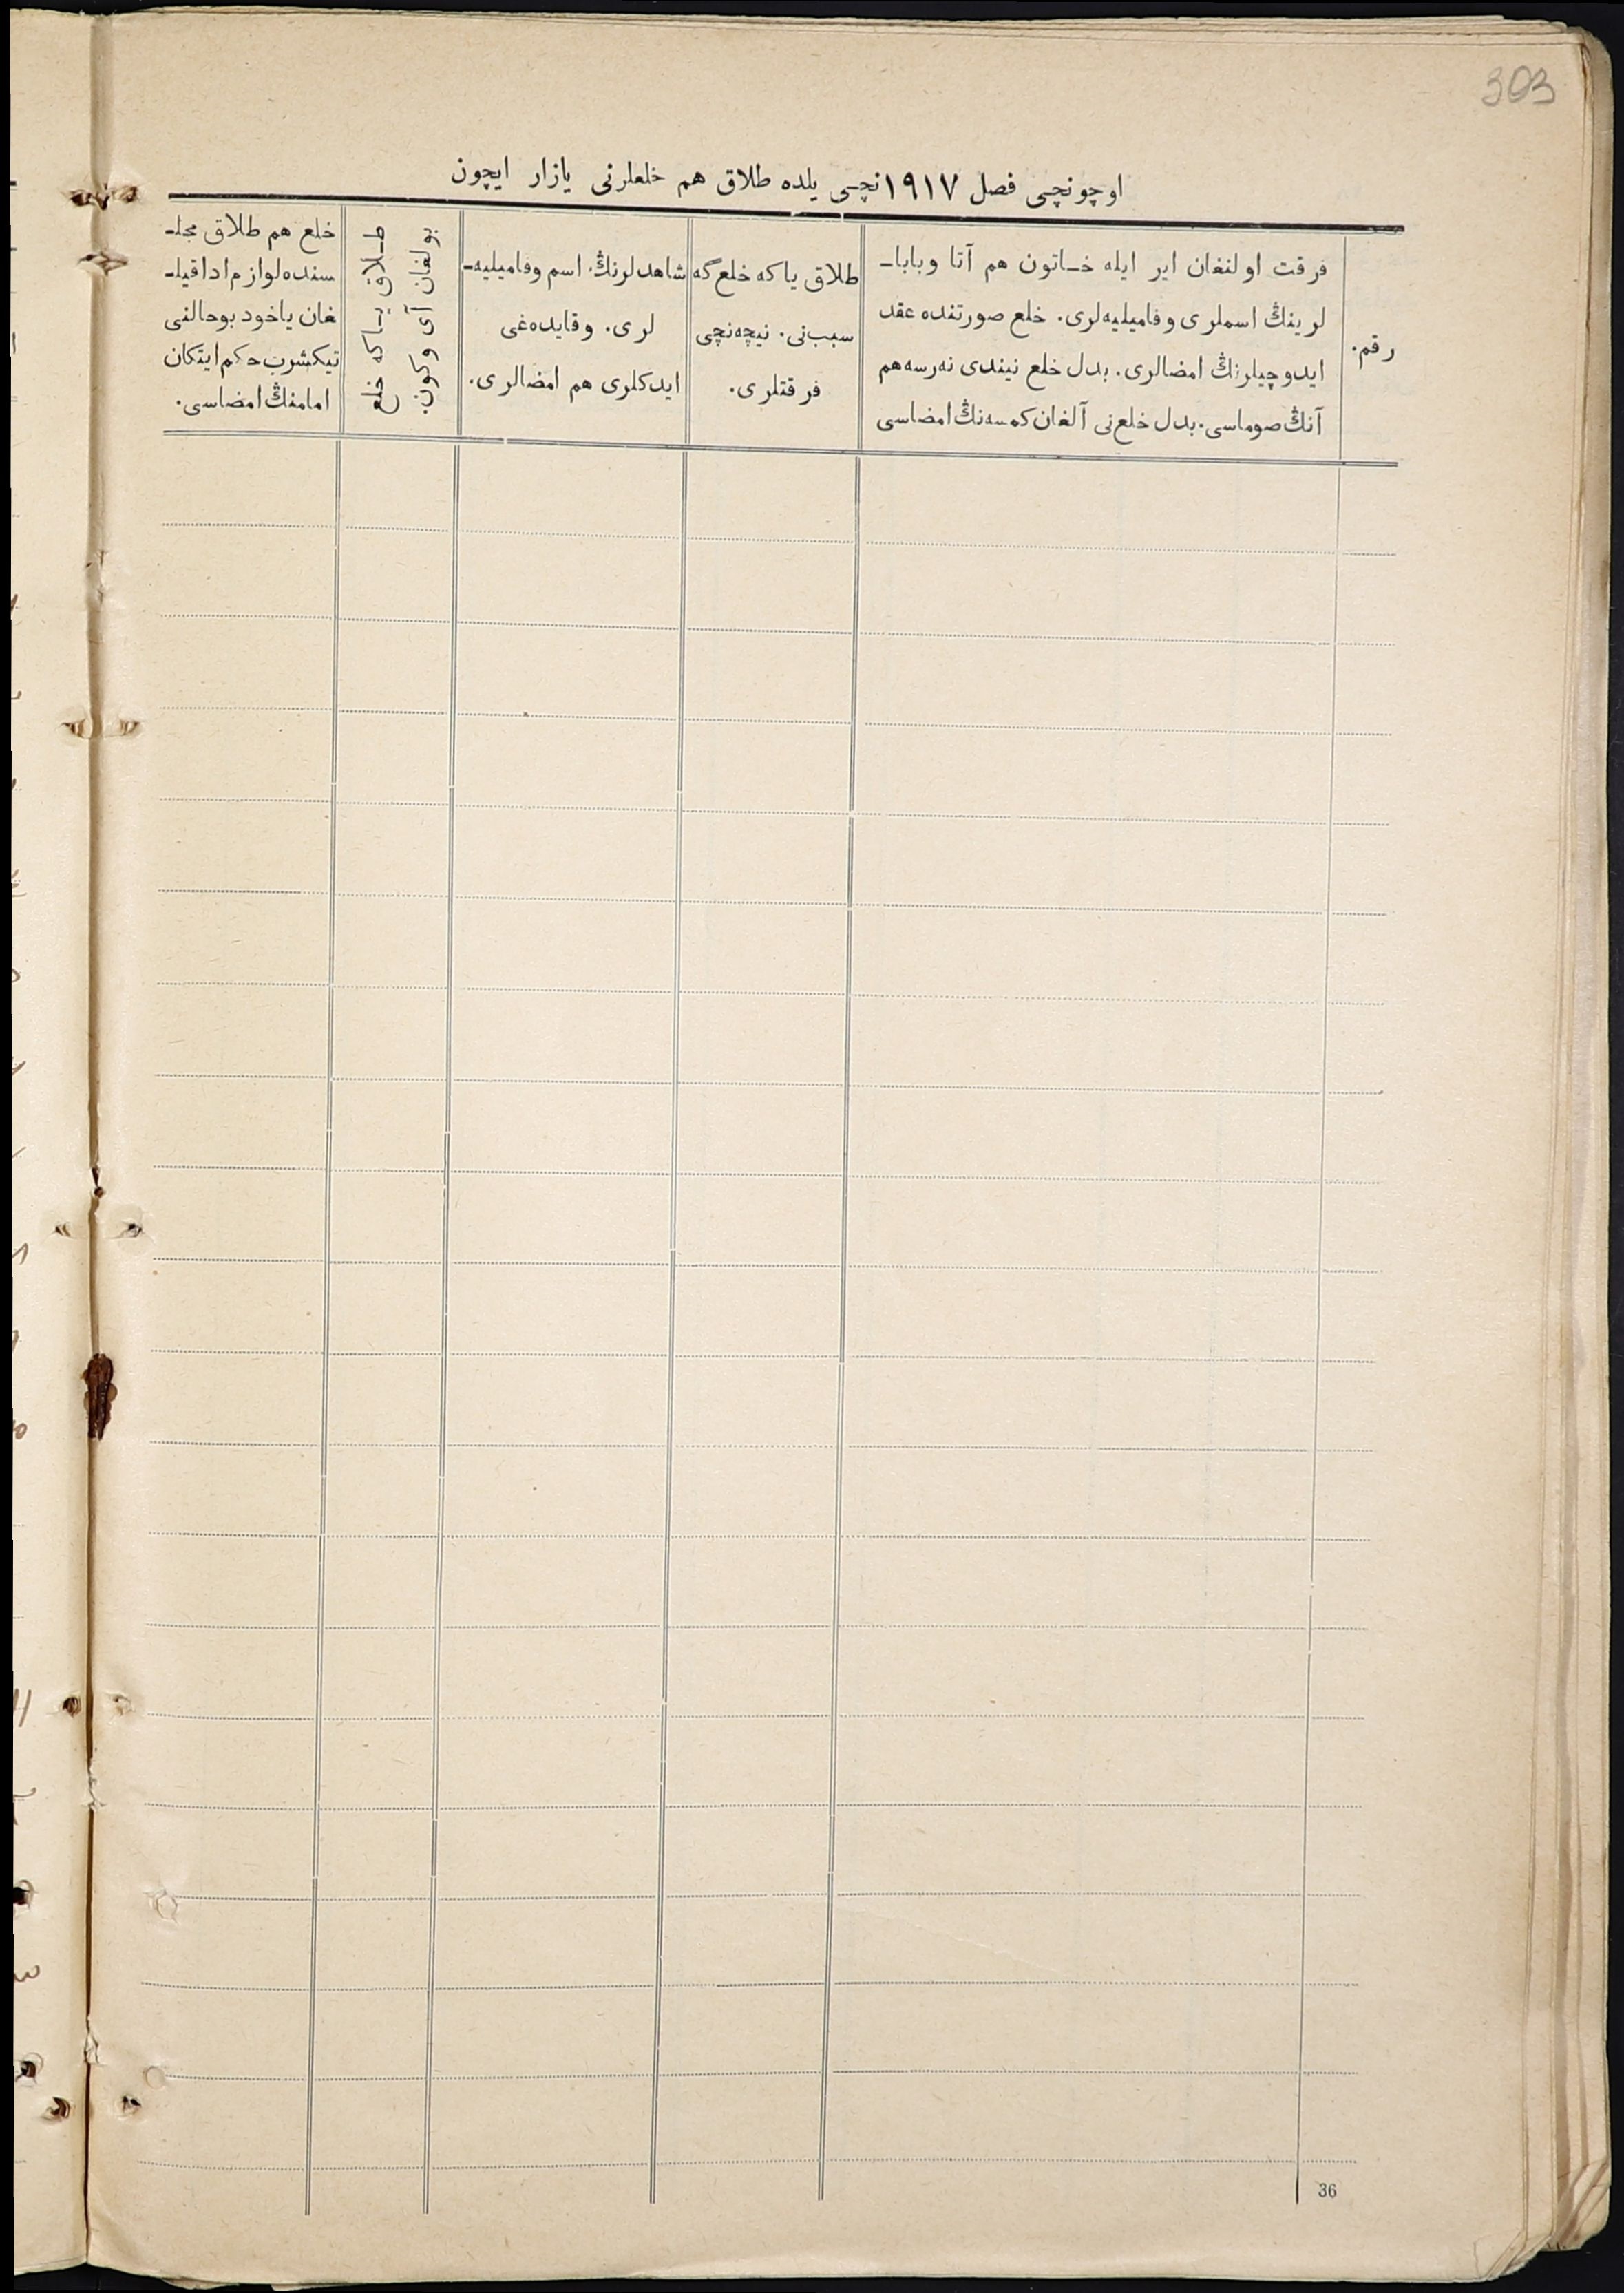 303
اوچونچی فصل ١٩١٧نچی یلده طلاق هم خلعلرنی یازار ایچون
رقم.
فرقت اولنغان ایر ایله خـاتون هم آتا وبابا‍ـ
لرینڭ اسملری وفامیلیه‌لری. خلع صورتنده عقد
ایدوچیلرنڭ امضالری. بدل خلع نیندی نه‌رسه‌هم
آنڭ صوماسی. بدل خلع‌نی آلغان کمسه‌نڭ امضاسی
طلاق یا که خلع گه
سبب‌نی. نیچه‌نچی
فرقتلری.
شاهدلرنڭ اسم وفامیلیه‍ـ
لری. وقایده‌غی
ایدکلری هم امضالری.
طـلاق یـاکه خلع
بولغان آی وکون.
خلع هم طلاق مجلـ
سنده لوازم ادا قیلـ
غان یاخود بوحالنی
تیکشرب حکم ایتکان
امامنڭ امضاسی.
36